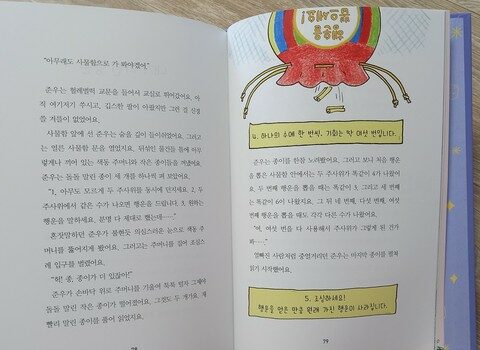 "아무래도 사물함으로 가 봐야겠어."
준우는 헐레벌떡 교문을 들어서 교실로 뛰어갔어요. 아
직 여기저기 쑤시고, 깁스한 팔이 아팠지만 그런 걸 신경
쓸 겨를이 없었어요.
사물함 앞에 선 준우는 숨을 깊이 들이쉬었어요. 그러고
는 얼른 사물함 문을 열었지요. 뒤섞인 물건들 틈에 아무
렇게나 끼어 있는 색동 주머니와 작은 종이들을 꺼냈어요.
준우는 돌돌 말린 종이 세 개를 하나씩 펴 보았어요.
"1, 아무도 모르게 두 주사위를 동시에 던지세요. 2, 두
주사위에서 같은 수가 나오면 행운을 드립니다. 3, 원하는
행운을 말하세요. 분명 다 제대로 했는데……."
혼잣말하던 준우가 불현듯 의심스러운 눈으로 색동 주
머니를 뚫어지게 봤어요. 그러더니 주머니를 집어 조심스
레 입구를 벌렸어요.
"헉! 종, 종이가 더 있잖아!"
준우가 손바닥 위로 주머니를 기울여 툭툭 털자 그제야
돌돌 말린 작은 종이가 떨어졌어요. 그것도 두 개가요. 재
빨리 말린 종이를 풀어 읽었지요.
행운을
뽑아요!
4. 하나의 수에 한 번씩, 기회는 딱 여섯 번입니다.
준우는 종이를 한참 노려봤어요. 그러고 보니 처음 행운
을 뽑은 사물함 안에서는 두 주사위가 똑같이 4가 나왔어
요. 두 번째 행운을 뽑을 때는 똑같이 3, 그리고 세 번째
는 똑같이 6이 나왔지요. 그 뒤 네 번째, 다섯 번째, 여섯
번째 행운을 뽑을 때도 각각 다른 수가 나왔어요.
"어, 여섯 번을 다 사용해서 주사위가 그렇게 된 건가
봐……."
얼빠진 사람처럼 중얼거리던 준우는 마지막 종이를 펼쳐
읽기 시작했어요.
5. 조심하세요!
행운을 얻은 만큼 원래 가진 행운이 사라집니다.
79